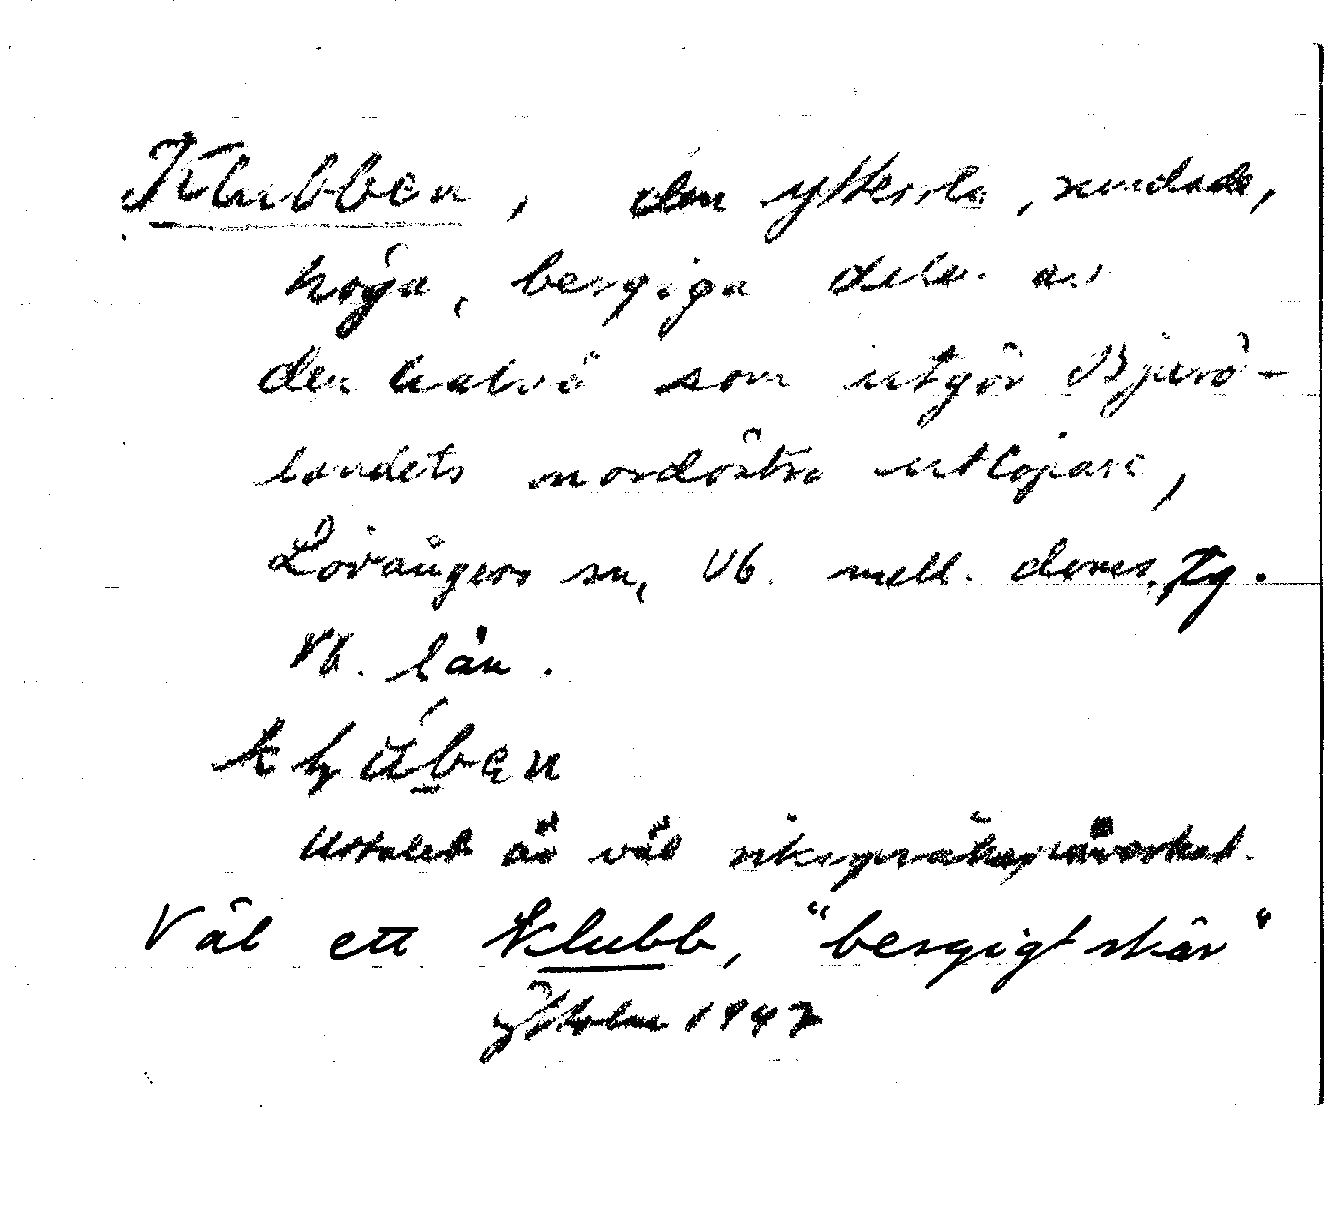 Klubben, den yttersta, rundade,
höga, bergiga delen av
den halvö som utgör Bjurö-
landets nordöstra utlöpare,
Lövångers sn, Vb. mell. doms. tg.
Vb. län.
Uttalet är väl riksspråkspåverkat.
Väl ett klubb, "bergigt skär"
GHolm 1947